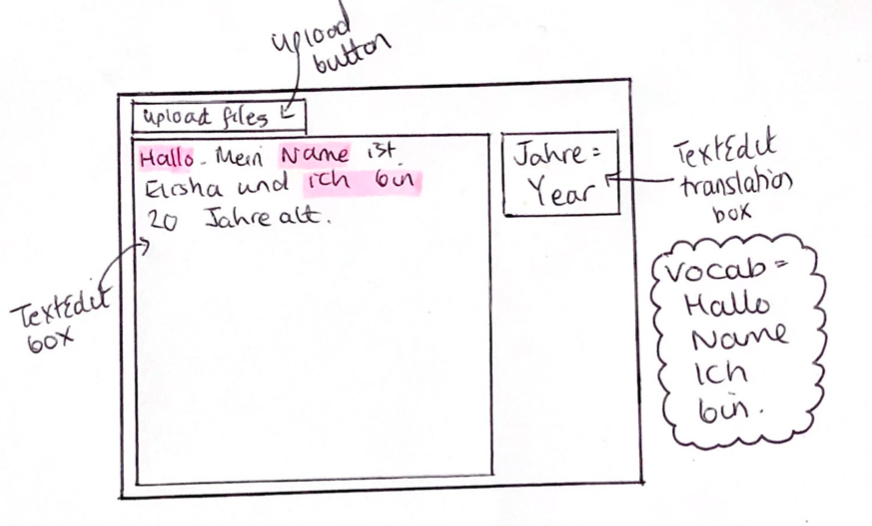 upload
button
upload files
Hallo. Mein Name ist.
Eirsha und ich bin
20 Jahre alt.
Jahre =
Year
TextEdit
translation
box
TextEdit
box
Vocab =
Hallo
Name
Ich
bin.